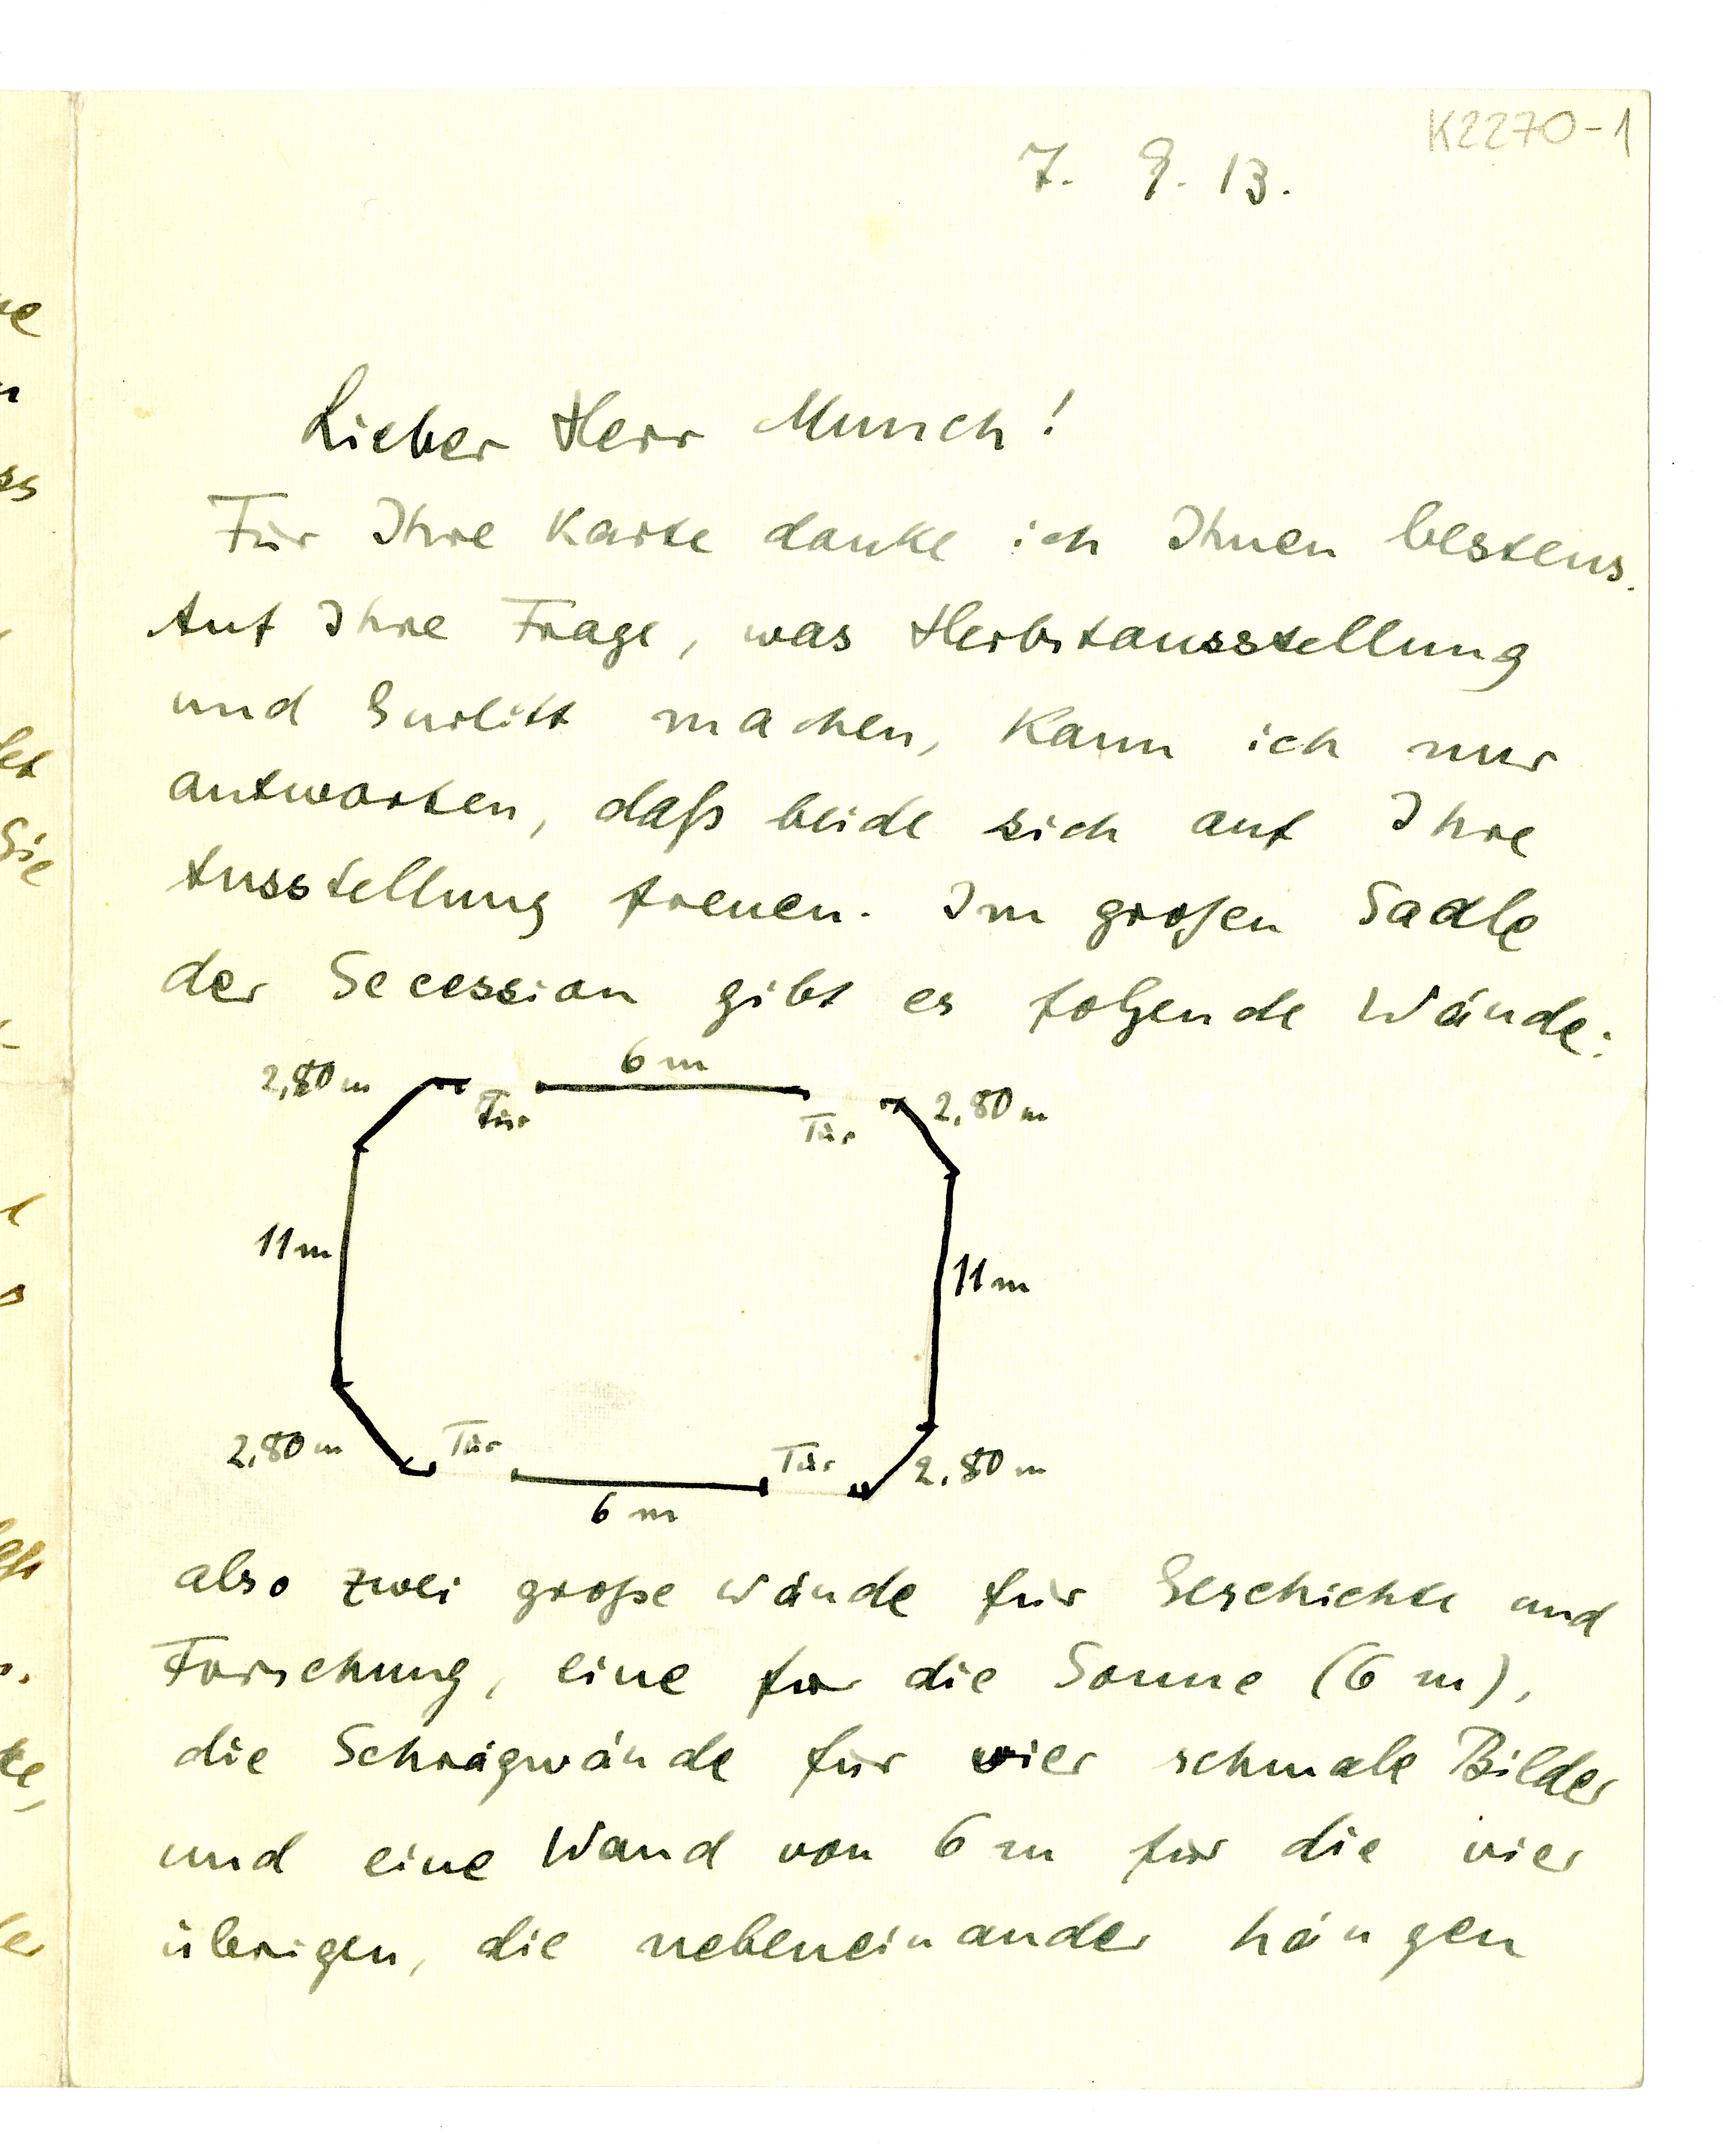 K2270-1
7. 9. 13.
Lieber Herr Munch!
Für Ihre Karte danke ich Ihnen bestens.
Auf Ihre Frage, was Herbstausstellung
und Gurlitt machen, kann ich nur
antworten, daß beide sich auf Ihre
Ausstellung freuen. Im großen Saale
der Secession gibt es folgende Wände:
2,80 m 6 m 2,80 m
Tür Tür
11 m 11 m
2,80 m Tür Tür 2,80 m
6 m
also zwei große Wände für Geschichte und
Forschung, eine für die Sonne (6 m),
die Schrägwände für vier schmale Bilder
und eine Wand von 6 m für die vier
übrigen, die nebeneinander hängen